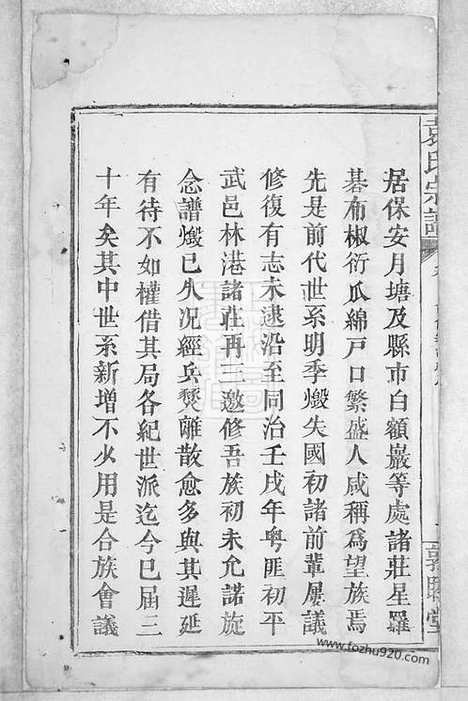 袁氏宗譜
居保安月塘及縣市白額巖等處諸莊星羅
碁布椒衍瓜綿戶口繁盛人咸稱爲望族焉
先是前代世系明季燬失國初諸前輩屢議
修復有志未逮沿至同治壬戌年粵匪初平
武邑林港諸莊再三邀修吾族初未允諾旋
念譜燬已久況經兵燹離散愈多與其遲延
有待不如權借其局各紀世派迄今已屆三
十年矣其中世系新增不少用是合族會議
www.fozhu920.com